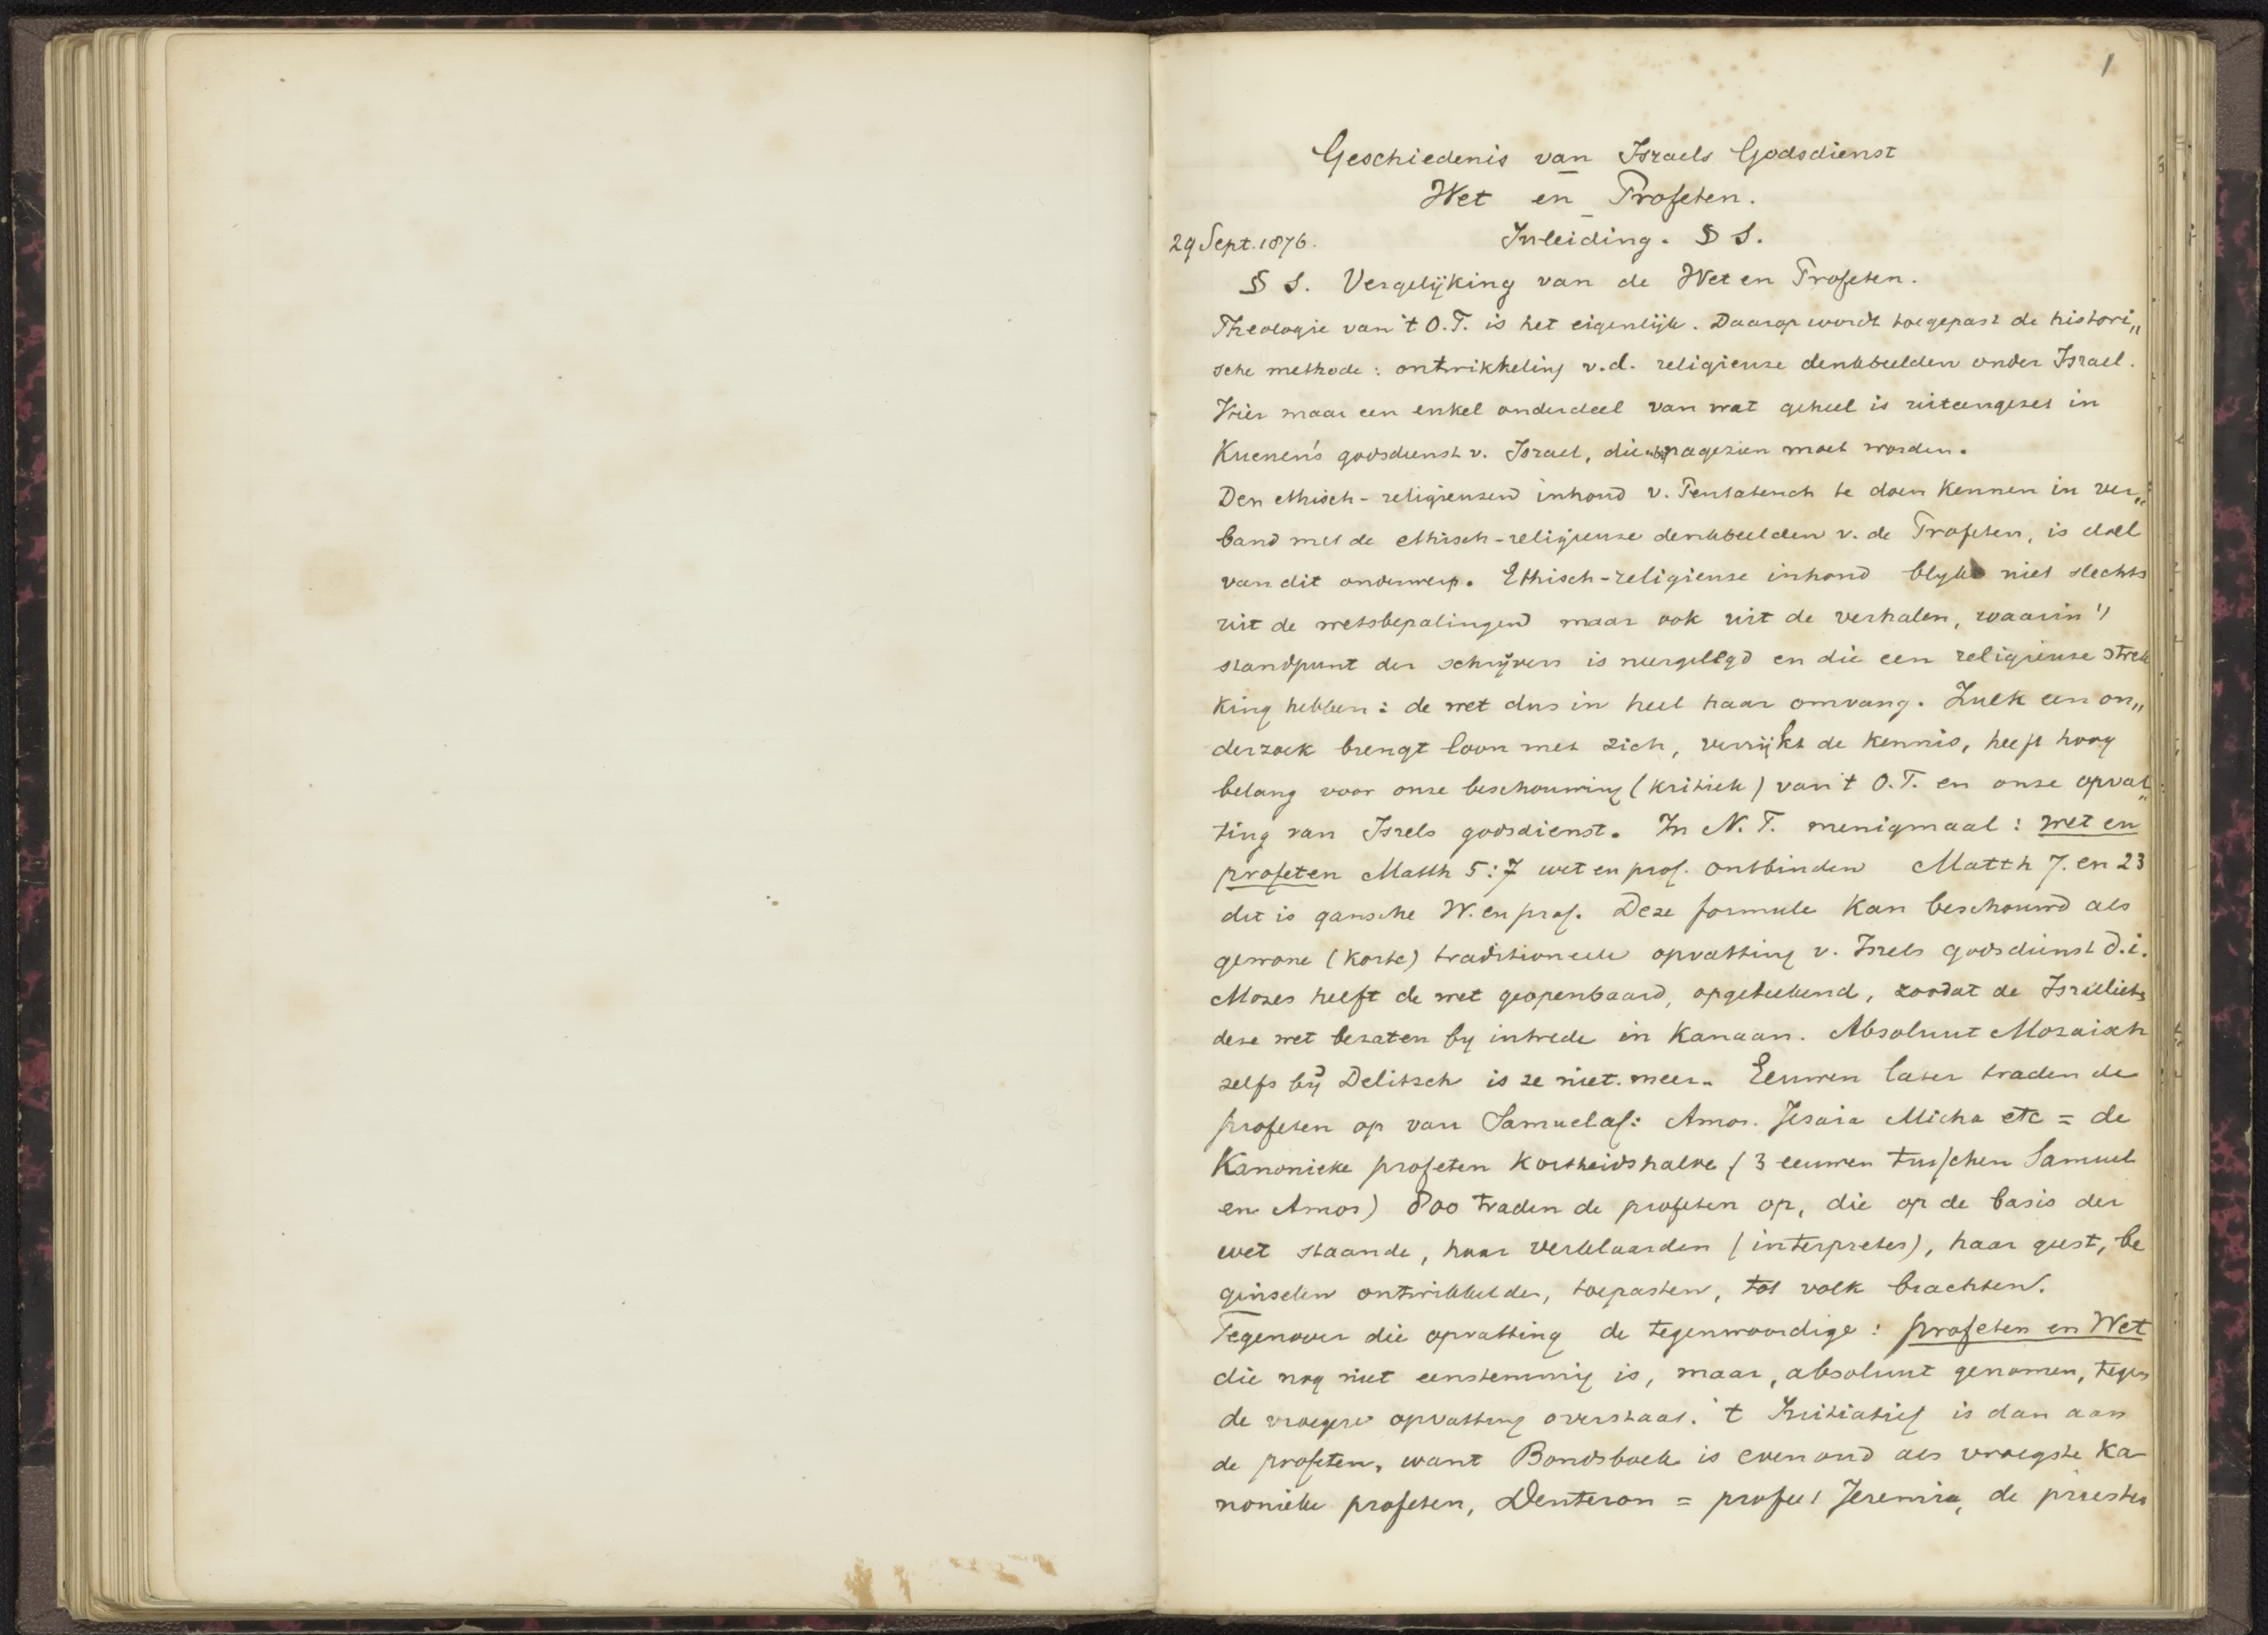 1
Geschiedenis van Israels Godsdienst
Wet en Profeten.
29 Sept. 1876. Inleiding. § 1.
§ 1. Vergelijking van de Wet en Profeten.
Theologie van 't O.T. is het eigenlijk. Daarop wordt toegepast de histori„
sche methode: ontwikkeling v.d. religieuse denkbeelden onder Israel.
Hier maar een enkel onderdeel van wat geheel is uiteengezet in
Kuenen's godsdienst v. Israel, die nagezien moet worden.
Den ethisch-religieusen inhoud v. Pentateuch te doen kennen in ver„
band met de ethisch-religieuse denkbeelden v. de Profeten, is doel
van dit onderwerp. Ethisch-religieuse inhoud blykt niet slechts
uit de wetsbepalingen maar ook uit de verhalen, waarin 't
standpunt der schrijvers is neergelegd en die een religieuse strek
king hebben: de wet dus in heel haar omvang. Zulk een on„
derzoek brengt loon met zich, verrijkt de kennis, heeft hoog
belang voor onze beschouwing (kritiek) van 't O.T. en onze opvat„
ting van Isrels godsdienst. In N.T. menigmaal: wet en
profeten Matth 5:7 wet en prof. ontbinden Matth 7. en 23
dit is gansche W. en prof. Deze formule kan beschouwd als
gewone (korte) traditioneele opvatting v. Isrels godsdienst d.i.
Mozes heeft de wet geopenbaard, opgeteekend, zoodat de Israelieten
deze wet bezaten by intrede in Kanaan. Absoluut Mozaisch
zelfs bij Delitsch is ze niet meer. Eeuwen later traden de
profeten op van Samuel af: Amos. Jesaia Micha etc = de
Kanonieke profeten kortheidshalve (3 eeuwen tusschen Samuel
en Amos) 800 traden de profeten op, die op de basis der
wet staande, haar verklaarden (interpretes), haar geest, be
ginselen ontwikkelden, toepasten, tot volk brachten.
Tegenover die opvatting de tegenwoordige: profeten en Wet
die nog niet eenstemmig is, maar, absoluut genomen, tegen
de vroegere opvatting overstaat. 't Initiatief is dan aan
de profeten, want Bondsboek is even oud als vroegste Ka
nonieke profeten, Deuteron = profeet Jeremia, de priester